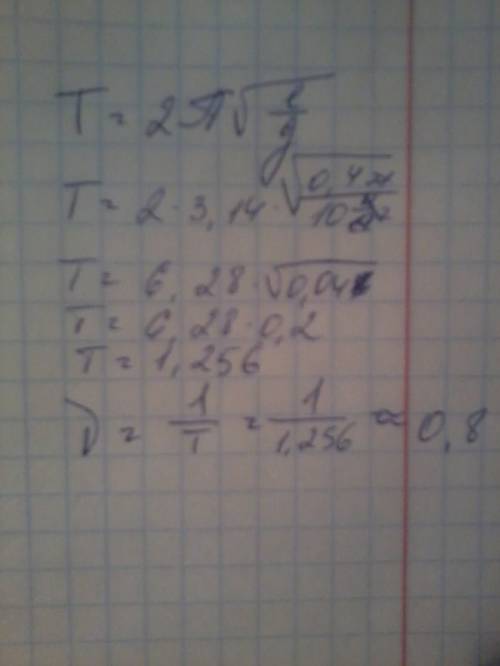 T = 2π√(l/g)
T = 2 · 3,14 · √(0,4м/10)
T = 6,28 · √0,04
T = 6,28 · 0,2
T = 1,256
ν = 1/T = 1/1,256 ≈ 0,8